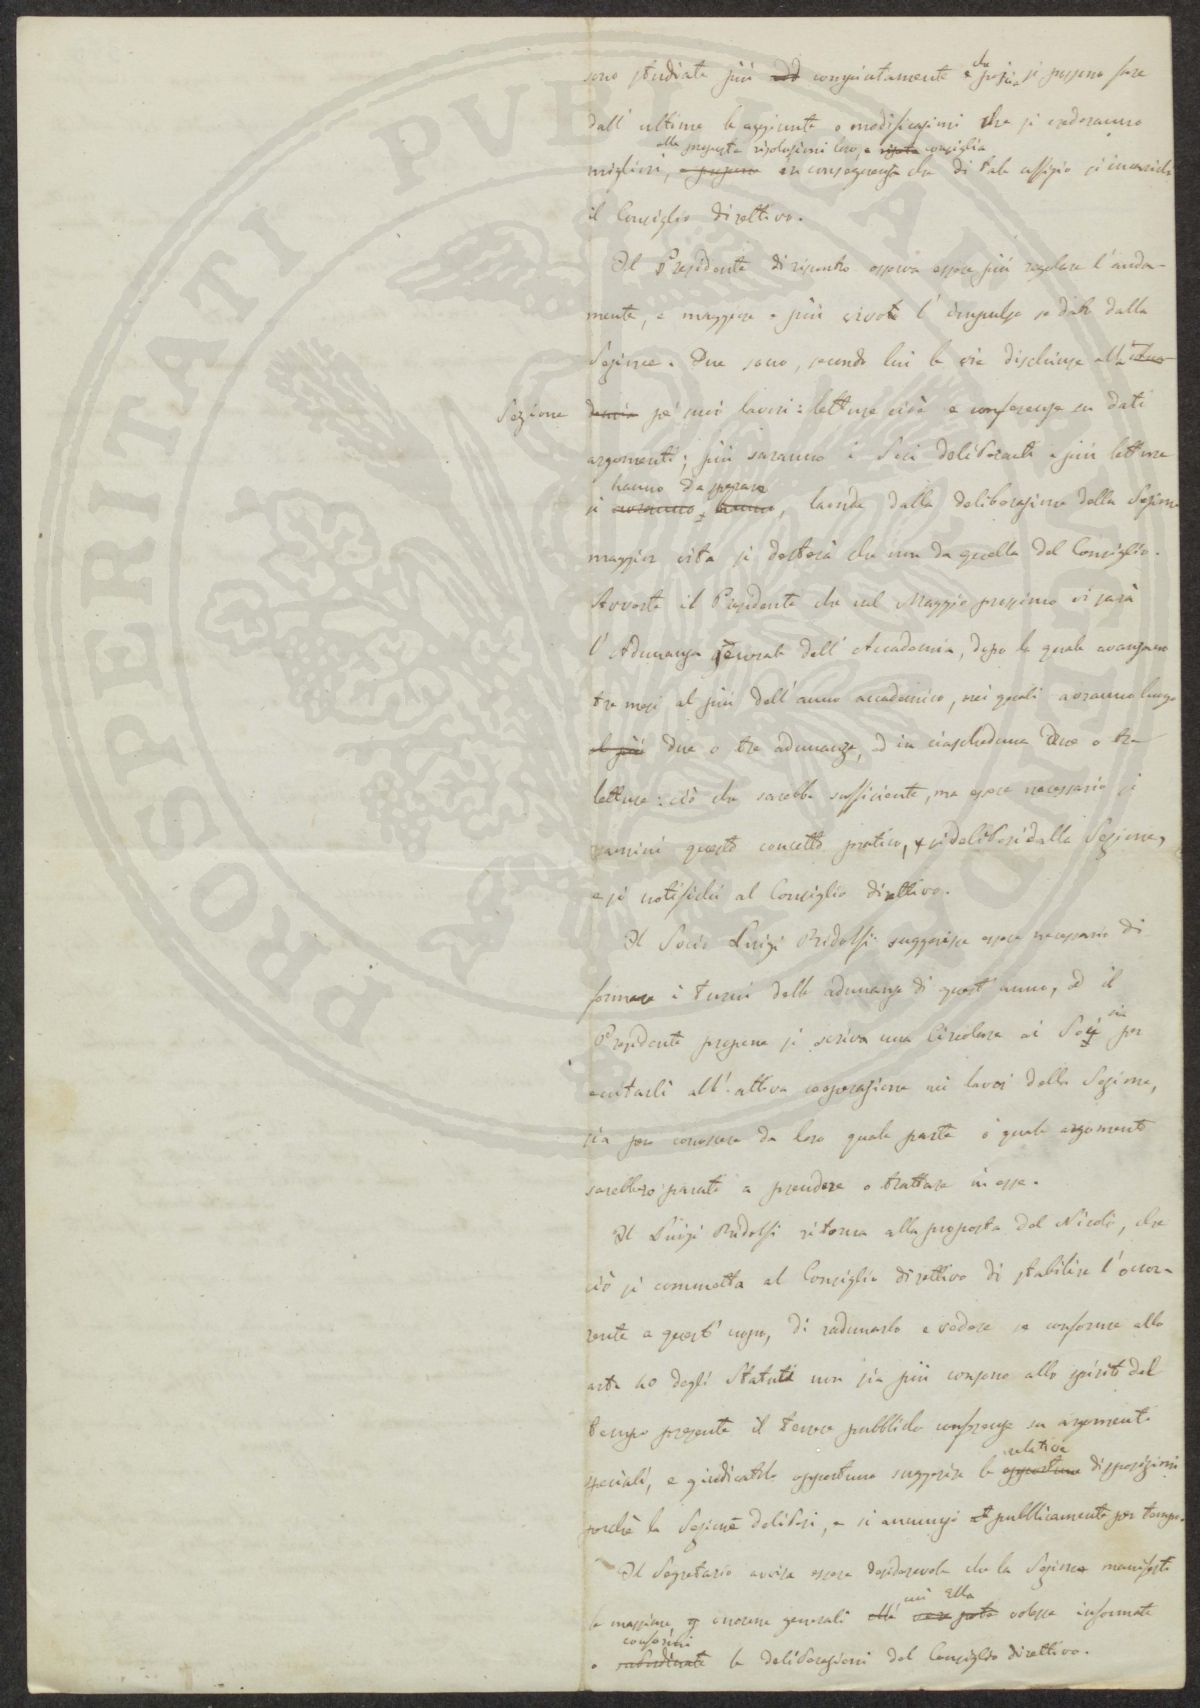 sono studiate più congiuntamente e da poscia si possono fare
dall' ultime le aggiunte o modificazioni che si crederanno
alle proposte risoluzioni loro, e consiglia
migliori, e propone in conseguenza che di tale uffizio si incarichi
il Consiglio direttivo.
Il Presidente di riscontro osserva essere più regolare l'anda-
mento, e maggiore e più vivo l'impulso se dato dalla
Sezione. Due sono, secondo lui le vie dischiuse alla
Sezione pe' suoi lavori: letture cioè e conferenze su dati
argomenti; più saranno i Soci deliberanti e più letture
hanno da sperare
si avranno, laonde dalla deliberazione della Sezione
maggior vita si desterà che non da quella del Consiglio.
Avverte il Presidente che nel Maggio prossimo vi sarà
l'Adunanza generale dell' Accademia, dopo la quale avanzano
tre mesi al più dell' anno accademico, nei quali avranno luogo
al più due o tre adunanze, ed in ciascheduna due o tre
letture: ciò che sarebbe sufficiente, ma essere necessario si
esamini questo concetto pratico, si deliberi dalla Sezione,
e si notifichi al Consiglio direttivo.
Il Socio Luigi Ridolfi suggerisce essere necessario di
formare i turni delle adunanze di quest' anno, ed il
Presidente propone si scriva una Circolare ai Soci sia per
eccitarli all' attiva cooperazione nei lavori della Sezione,
sia per conoscere da loro quale parte o quale argomento
sarebbero parati a prendere o trattare in esse.
Il Luigi Ridolfi ritorna alla proposta del Nicolò, che
ciò si commetta al Consiglio direttivo di stabilire l'occor-
rente a quest' uopo, di radunarlo e vedere se conforme allo
arte 40 degli Statuti non sia più consono allo spirito del
tempo presente il tenere pubbliche conferenze su argomenti
speciali, e giudicatolo opportuno suggerire le
relative
opportune disposizioni
perchè la Sezione deliberi, e si annunzi pubblicamente per tempo.
Il Segretario avvisa essere desiderevole che la Sezione manifesti
le massime, o norme generali
cui Ella
volesse informate
conformi
o subordinate le deliberazioni del Consiglio direttivo.
PROSPERITATI PVBLICAE